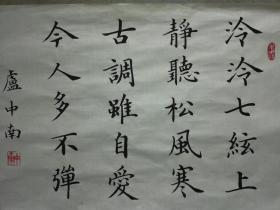 泠泠七絃上
靜聽松風寒
古調雖自愛
今人多不彈
盧中南